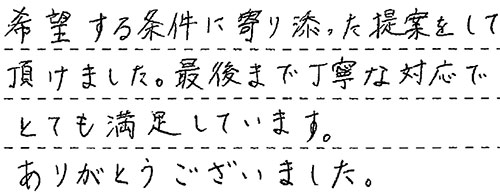 希望する条件に寄り添った提案をして
頂けました。最後まで丁寧な対応で
とても満足しています。
ありがとうございました。